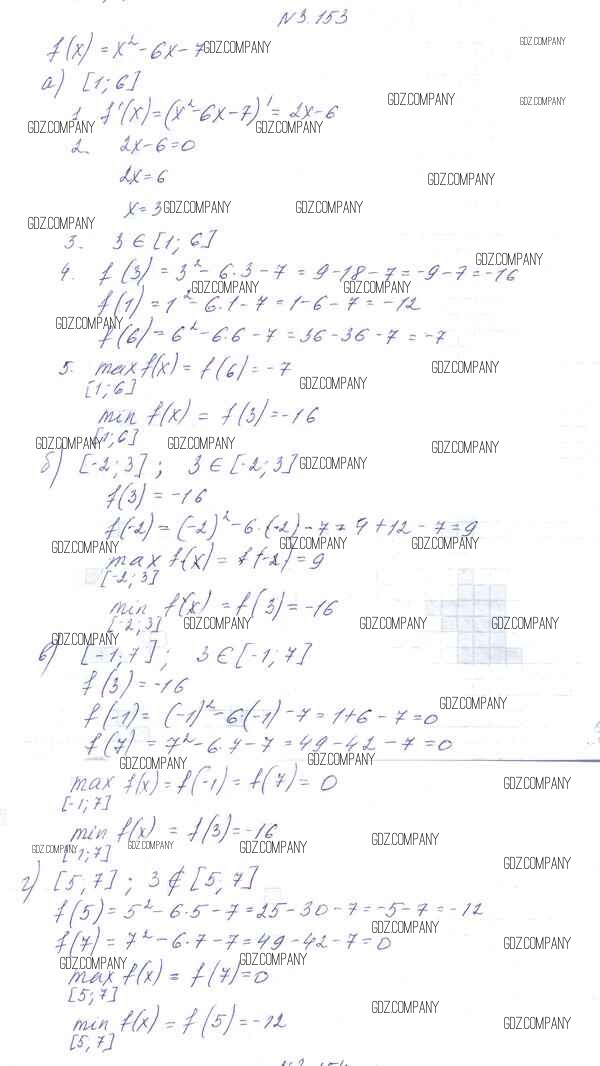 N 3.153
f(x) = x² - 6x - 7 GDZ.COMPANY GDZ.COMPANY
а) [1; 6] GDZ.COMPANY GDZ.COMPANY
1. f'(x) = (x² - 6x - 7)' = 2x - 6
GDZ.COMPANY GDZ.COMPANY
2. 2x - 6 = 0
2x = 6 GDZ.COMPANY
x = 3 GDZ.COMPANY GDZ.COMPANY
GDZ.COMPANY
3. 3 ∈ [1; 6]
GDZ.COMPANY
4. f(3) = 3² - 6·3 - 7 = 9 - 18 - 7 = -9 - 7 = -16
GDZ.COMPANY GDZ.COMPANY
f(1) = 1² - 6·1 - 7 = 1 - 6 - 7 = -12
GDZ.COMPANY
f(6) = 6² - 6·6 - 7 = 36 - 36 - 7 = -7
5. max f(x) = f(6) = -7 GDZ.COMPANY
[1; 6] GDZ.COMPANY
min f(x) = f(3) = -16
[1; 6]
GDZ.COMPANY GDZ.COMPANY GDZ.COMPANY
б) [-2; 3] ; 3 ∈ [-2; 3] GDZ.COMPANY
f(3) = -16
f(-2) = (-2)² - 6·(-2) - 7 = 4 + 12 - 7 = 9
GDZ.COMPANY GDZ.COMPANY GDZ.COMPANY
max f(x) = f(-2) = 9
[-2; 3]
min f(x) = f(3) = -16
[-2; 3] GDZ.COMPANY GDZ.COMPANY GDZ.COMPANY
GDZ.COMPANY
в) [-1; 7] ; 3 ∈ [-1; 7]
f(3) = -16
GDZ.COMPANY
f(-1) = (-1)² - 6·(-1) - 7 = 1 + 6 - 7 = 0
f(7) = 7² - 6·7 - 7 = 49 - 42 - 7 = 0
GDZ.COMPANY GDZ.COMPANY
max f(x) = f(-1) = f(7) = 0 GDZ.COMPANY
[-1; 7]
min f(x) = f(3) = -16 GDZ.COMPANY
[-1; 7]
GDZ.COMPANY GDZ.COMPANY GDZ.COMPANY
GDZ.COMPANY
г) [5, 7] ; 3 ∉ [5, 7]
f(5) = 5² - 6·5 - 7 = 25 - 30 - 7 = -5 - 7 = -12
GDZ.COMPANY
f(7) = 7² - 6·7 - 7 = 49 - 42 - 7 = 0 GDZ.COMPANY
GDZ.COMPANY GDZ.COMPANY
max f(x) = f(7) = 0
[5; 7]
GDZ.COMPANY
min f(x) = f(5) = -12 GDZ.COMPANY
[5, 7]